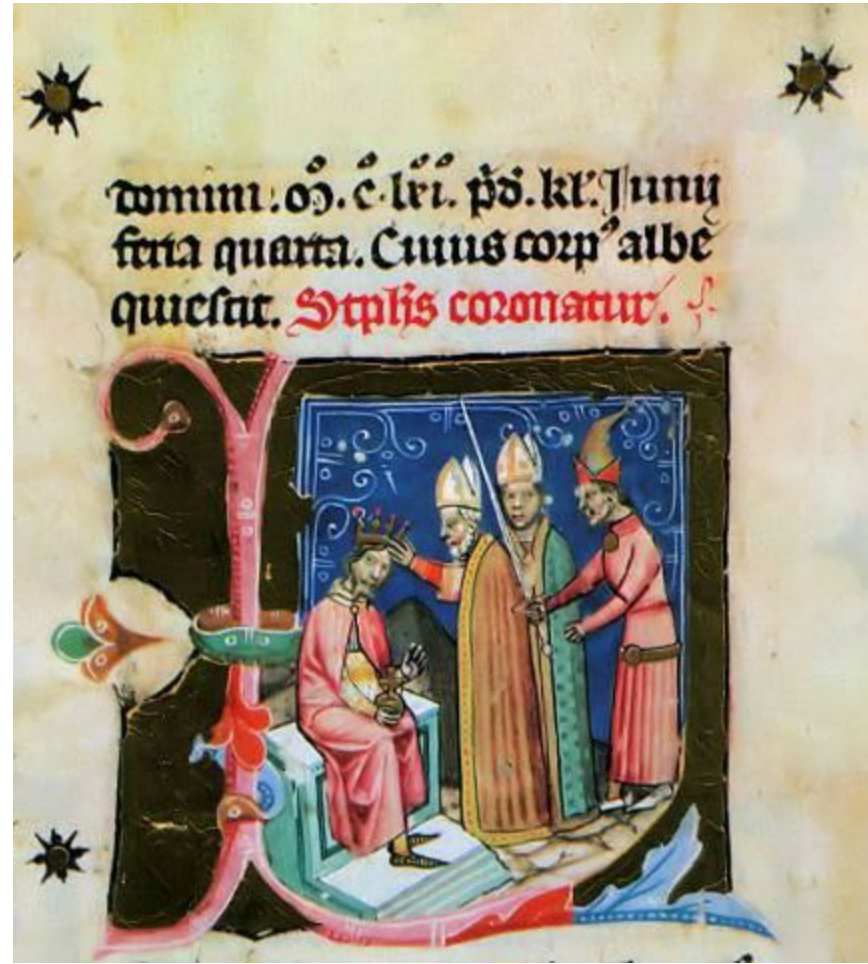 domini. Mͦ. Cͦ. lxͦiͦ. pͦdͦ. kl'. Junij
feria quarta. Cuius corpꝰ albe
quiescit. Stephs coronatur.